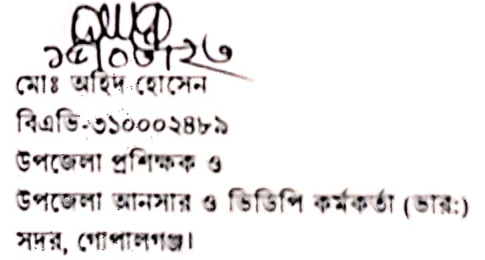 ১৫/০৩/২৩
মোঃ অহিদ হোসেন
বিএডি-৩১০০০২৪৮৯
উপজেলা প্রশিক্ষক ও
উপজেলা আনসার ও ভিডিপি কর্মকর্তা (ভার:)
সদর, গোপালগঞ্জ।